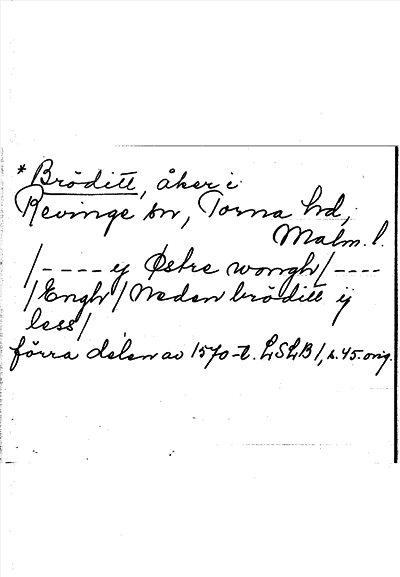 *Bröditt, åker i
Revinge sn, Torna hd,
Malm. l.
/---- ij Østre wongh/----
/Engh/Neden bröditt ij
less/
förra delen av 1570-t. LSLB 1, s. 45. orig.